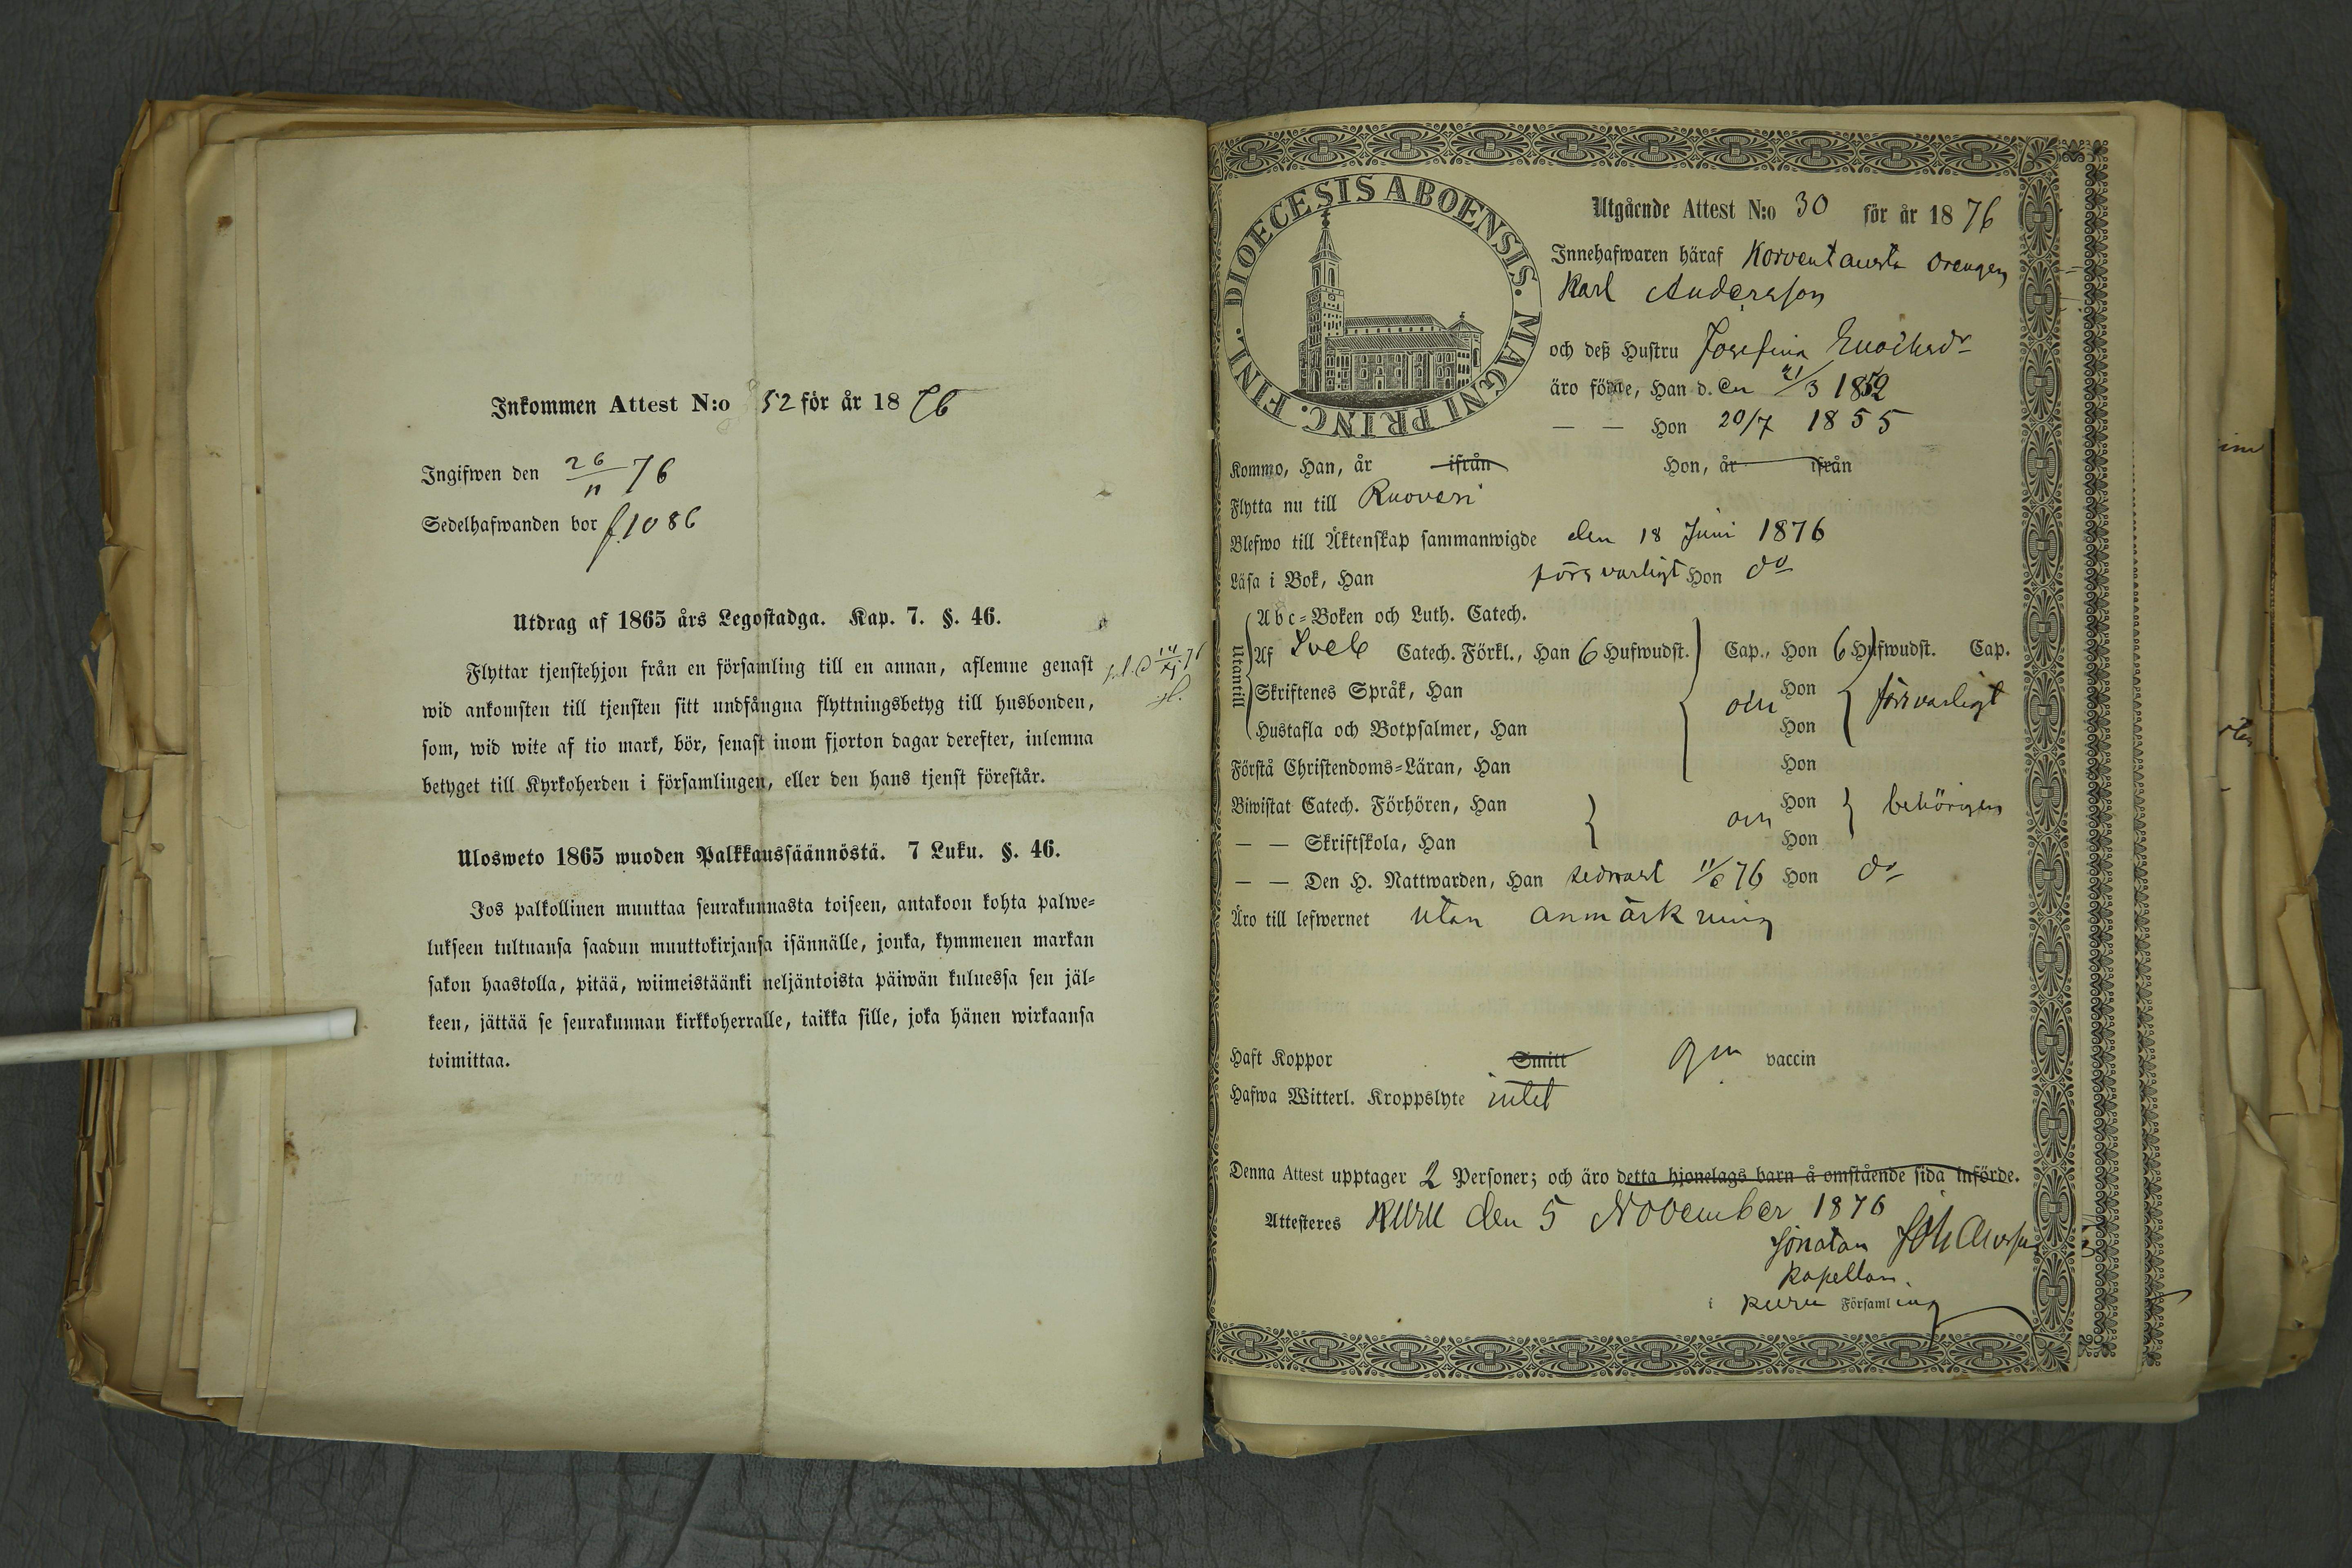 Inkommen Attest N:o 52 för år 1876
Ingifwen den 26/11 76
Sedelhafwanden bor f. 1086
Utdrag af 1865 års Legostadga. Kap. 7. §. 46.
Flyttar tjenstehjon från en församling till en annan, aflemne genast
wid ankomsten till tjensten sitt undfångna flyttningsbetyg till husbonden,
som, wid wite af tio mark, bör, senast inom fjorton dagar derefter, inlemna
betyget till Kyrkoherden i församlingen, eller den hans tjenst förestår.
Ulosweto 1865 wuoden Palkkaussäännöstä. 7 Luku. §. 46.
Jos palkollinen muuttaa seurakunnasta toiseen, antakoon kohta palwe-
lukseen tultuansa saadun muuttokirjansa isännälle, jonka, kymmenen markan
sakon haastolla, pitää, wiimeistäänki neljäntoista päiwän kuluessa sen jäl-
keen, jättää se seurakunnan kirkkoherralle, taikka sille, joka hänen wirkaansa
toimittaa.
DIOECESIS ABOENSIS. MAGNI PRINC. FINL.
Utgående Attest N:o 30 för år 1876
Innehafwaren häraf Korventausta drengen
Karl Andersson
och deß Hustru Josefina Enochsdr
äro födde, Han d. en 21/3 1852
— — Hon 20/7 1855
Kommo, Han, år ifrån Hon, år ifrån
Flytta nu till Ruovesi
Blefwo till Äktenskap sammanwigde den 18 Juni 1876
Läsa i Bok, Han försvarligt Hon do
Utantill
Abc-Boken och Luth. Catech.
Af Sveb Catech. Förkl., Han 6 Hufwudst. Cap., Hon 6 Hufwudst. Cap.
Skriftenes Språk, Han och Hon försvarligt
Hustafla och Botpsalmer, Han Hon
Förstå Christendoms-Läran, Han Hon
Biwistat Catech. Förhören, Han och Hon behörigen
— — Skriftskola, Han Hon
— — Den H. Nattwarden, Han sednast 11/6 76 Hon do
Äro till lefwernet utan anmärkning
Haft Koppor Smitt gm vaccin
Hafwa Witterl. Kroppslyte intet
Denna Attest upptager 2 Personer; och äro detta hjonelags barn å omstående sida införde.
Attesteres Kuru den 5 November 1876
Jonatan Johansson
Kapellan.
i Kuru Församling